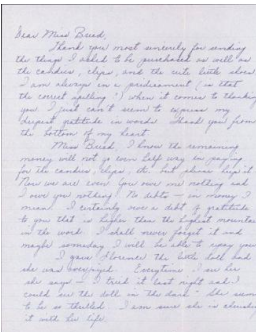 Dear Miss Breed,
Thank you most sincerely for sending
the things I asked to be purchased as well as
the candies, clips, and the cute little shoes.
I am always in a predicament (is that
the correct spelling?) when it comes to thanking
you. I just can't seem to express my
deepest gratitude in words. Thank you from
the bottom of my heart.
Miss Breed, I know the remaining
money will not go even half way in paying
for the candies, clips, etc. but please keep it.
Now we are even. You owe me nothing and
I owe you nothing. No debts — in money I
mean. I certainly owe a debt of gratitude
to you that is higher than the highest mountain
in the world. I shall never forget it and
maybe someday I will be able to repay you.
I gave Florence the little doll and
she was overjoyed. Everytime I see her
she says "I tried it last night and I
could see the doll in the dark." She seems
to be so thrilled. I am sure she is cherishing
it with her life.